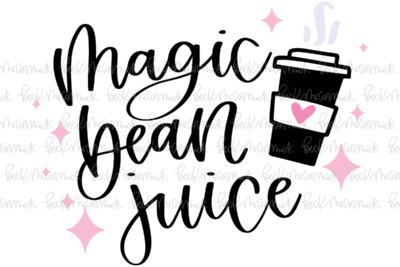 magic
bean
juice